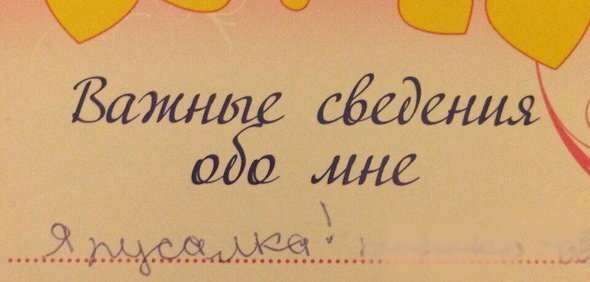 Важные сведения
обо мне
Я русалка!